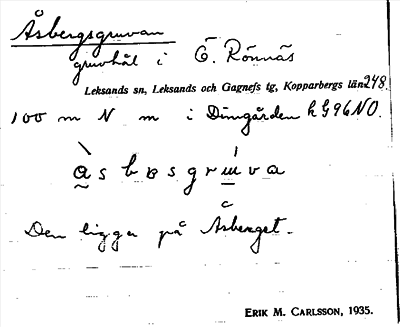 Åsbergsgruvan
gruvhål i Ö. Rönnäs
Leksands sn, Leksands och Gagnefs tg, Kopparbergs län 248.
100 m N m i Dimgården h G96NO.
àsbɐsgrɯ́va
Den ligger på Åsberget.
ERIK M. CARLSSON, 1935.